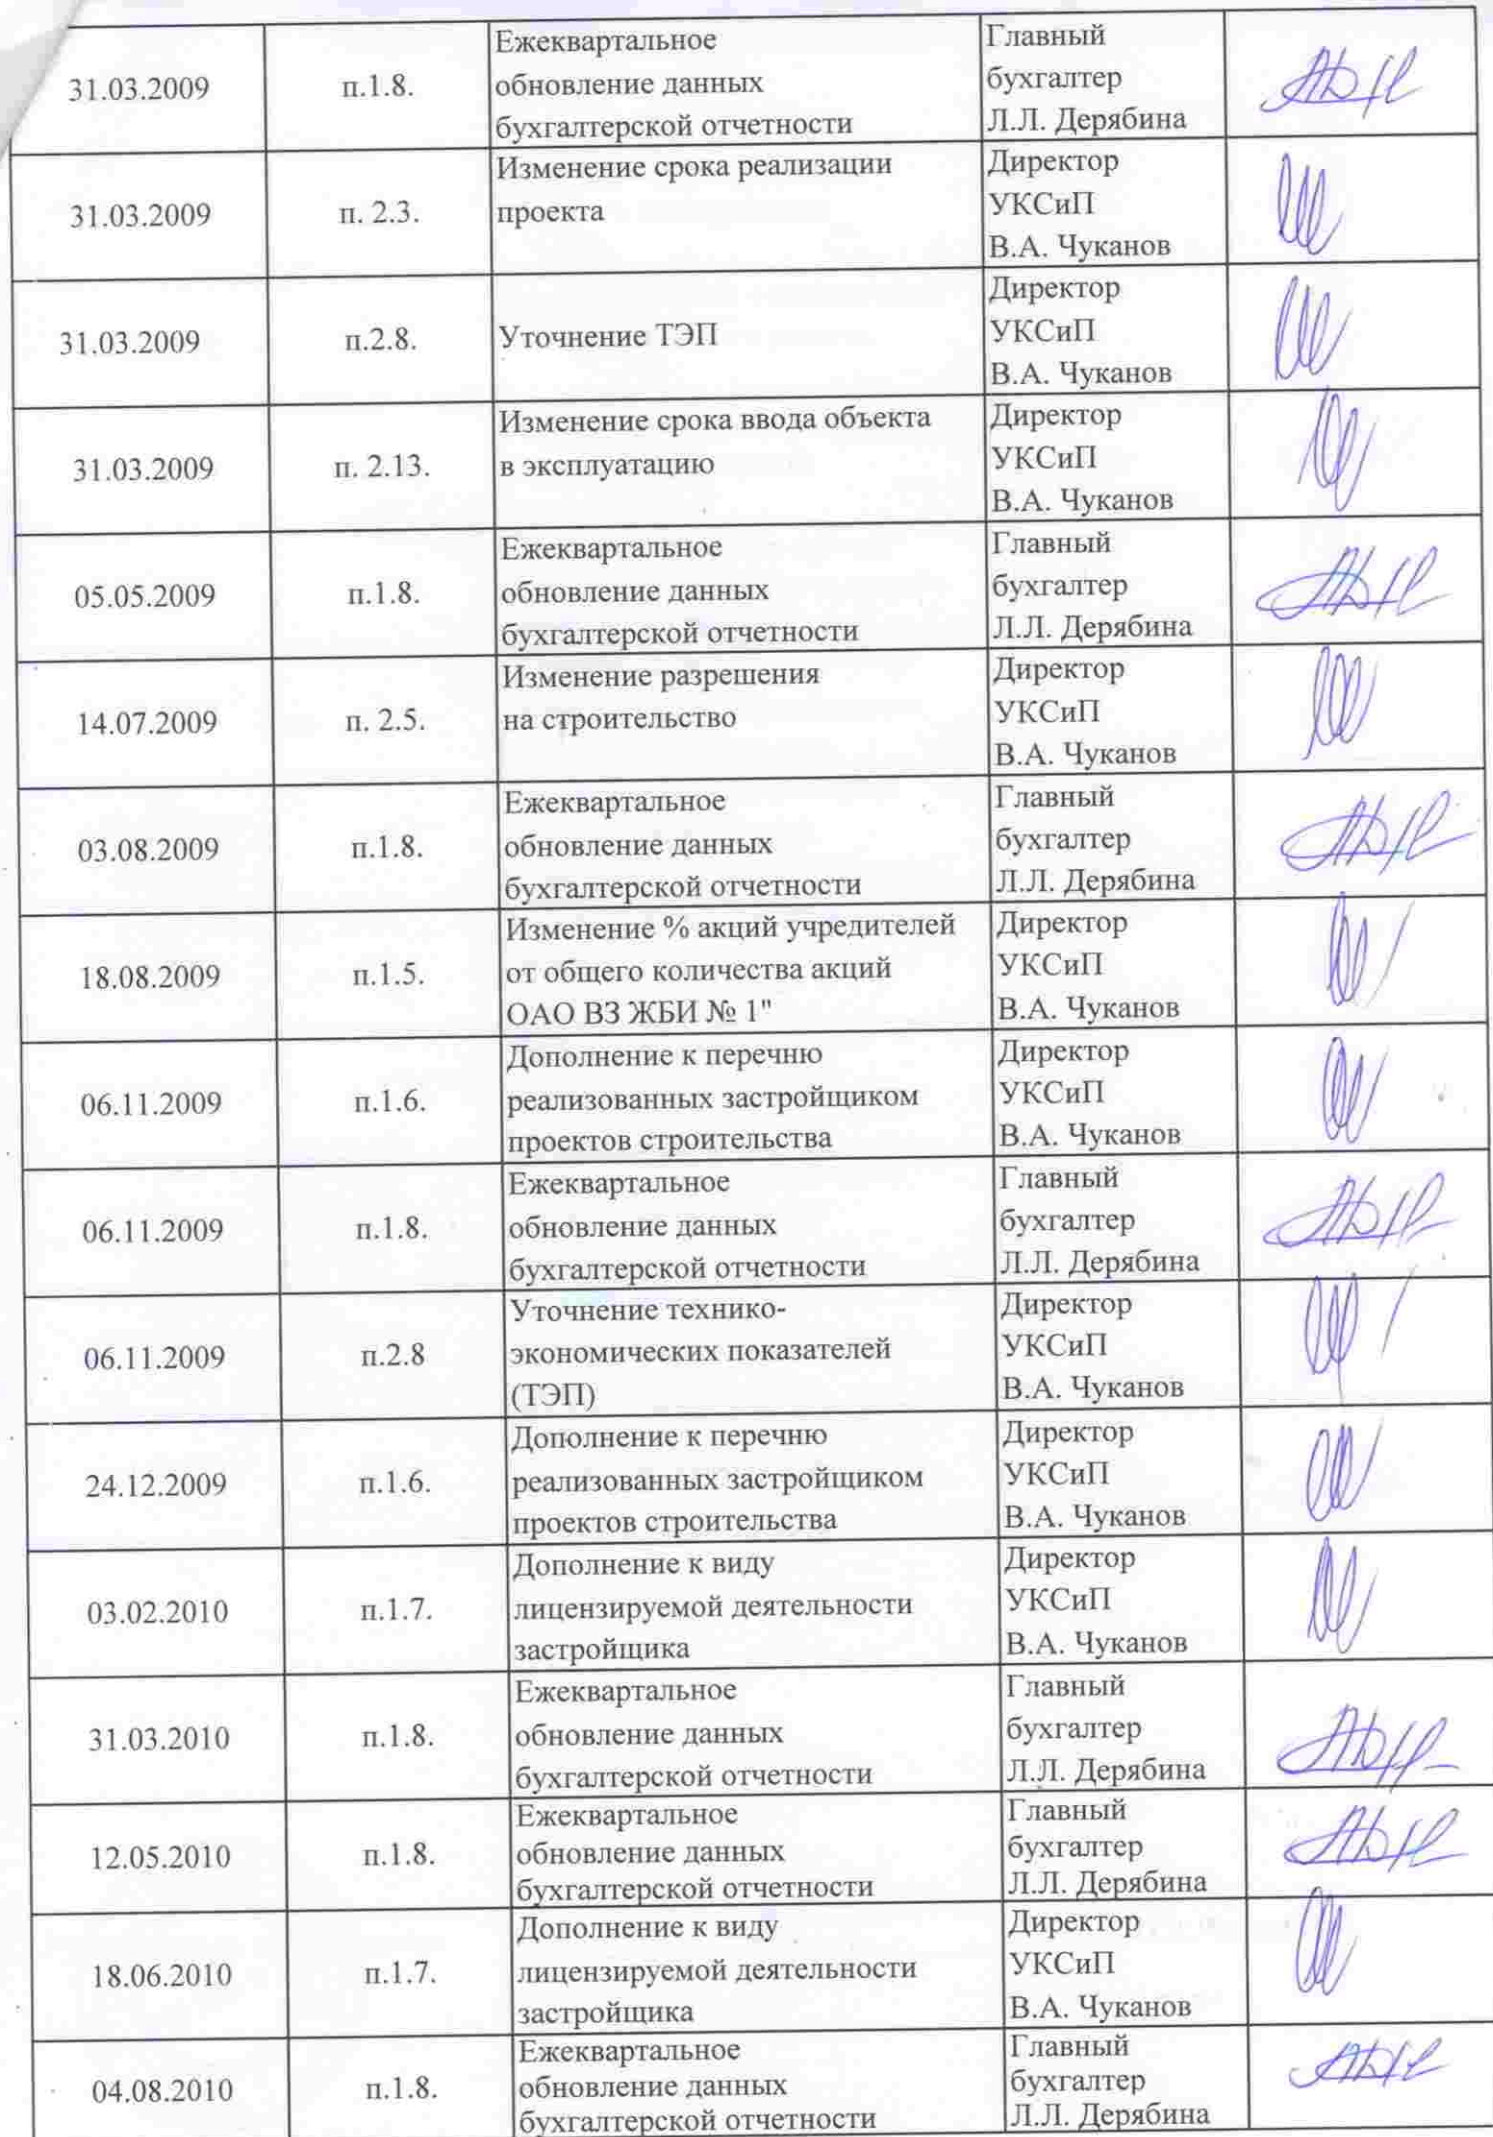 31.03.2009
п.1.8.
Ежеквартальное
обновление данных
бухгалтерской отчетности
Главный
бухгалтер
Л.Л. Дерябина
31.03.2009
п. 2.3.
Изменение срока реализации
проекта
Директор
УКСиП
В.А. Чуканов
31.03.2009
п.2.8.
Уточнение ТЭП
Директор
УКСиП
В.А. Чуканов
31.03.2009
п. 2.13.
Изменение срока ввода объекта
в эксплуатацию
Директор
УКСиП
В.А. Чуканов
05.05.2009
п.1.8.
Ежеквартальное
обновление данных
бухгалтерской отчетности
Главный
бухгалтер
Л.Л. Дерябина
14.07.2009
п. 2.5.
Изменение разрешения
на строительство
Директор
УКСиП
В.А. Чуканов
03.08.2009
п.1.8.
Ежеквартальное
обновление данных
бухгалтерской отчетности
Главный
бухгалтер
Л.Л. Дерябина
18.08.2009
п.1.5.
Изменение % акций учредителей
от общего количества акций
ОАО ВЗ ЖБИ № 1"
Директор
УКСиП
В.А. Чуканов
06.11.2009
п.1.6.
Дополнение к перечню
реализованных застройщиком
проектов строительства
Директор
УКСиП
В.А. Чуканов
06.11.2009
п.1.8.
Ежеквартальное
обновление данных
бухгалтерской отчетности
Главный
бухгалтер
Л.Л. Дерябина
06.11.2009
п.2.8
Уточнение технико-
экономических показателей
(ТЭП)
Директор
УКСиП
В.А. Чуканов
24.12.2009
п.1.6.
Дополнение к перечню
реализованных застройщиком
проектов строительства
Директор
УКСиП
В.А. Чуканов
03.02.2010
п.1.7.
Дополнение к виду
лицензируемой деятельности
застройщика
Директор
УКСиП
В.А. Чуканов
31.03.2010
п.1.8.
Ежеквартальное
обновление данных
бухгалтерской отчетности
Главный
бухгалтер
Л.Л. Дерябина
12.05.2010
п.1.8.
Ежеквартальное
обновление данных
бухгалтерской отчетности
Главный
бухгалтер
Л.Л. Дерябина
18.06.2010
п.1.7.
Дополнение к виду
лицензируемой деятельности
застройщика
Директор
УКСиП
В.А. Чуканов
04.08.2010
п.1.8.
Ежеквартальное
обновление данных
бухгалтерской отчетности
Главный
бухгалтер
Л.Л. Дерябина